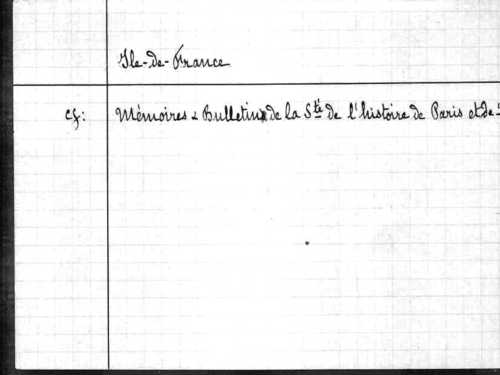 Ile-de-France
cf: Mémoires & Bulletin de la Sté de l'histoire de Paris et de